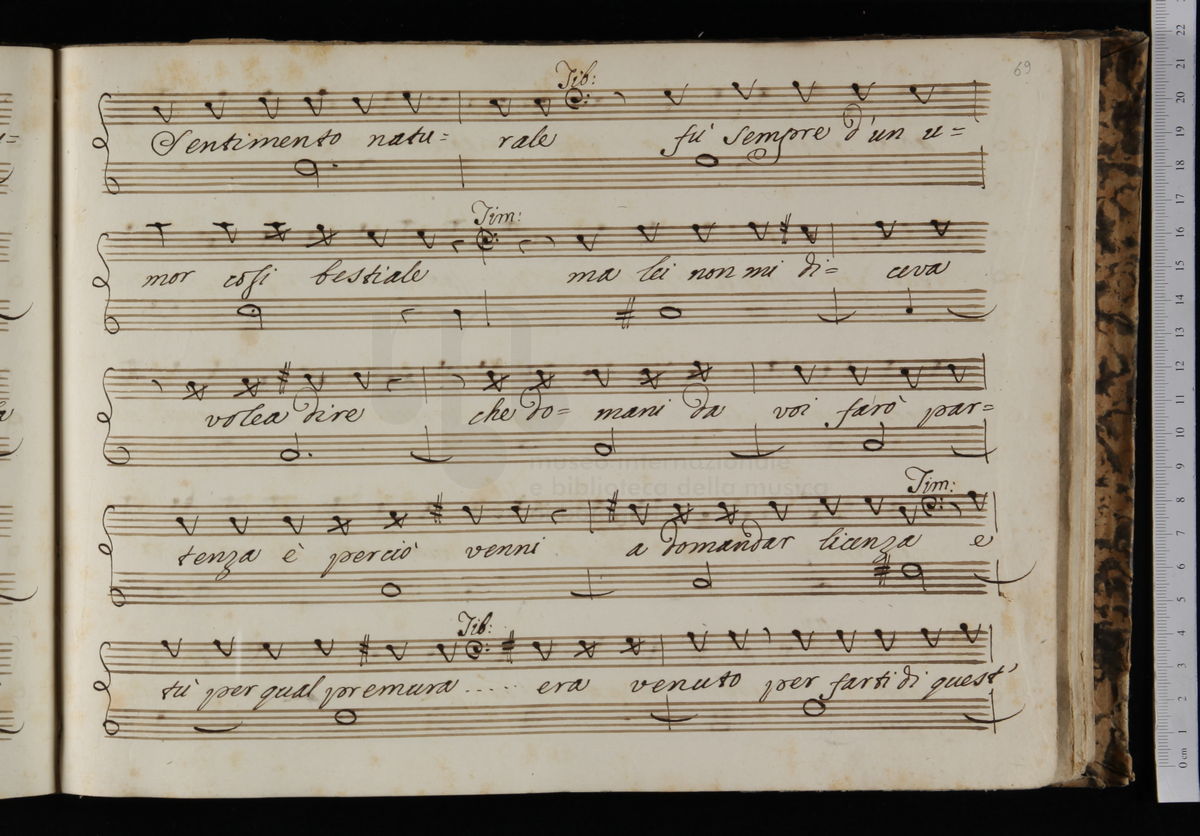 69
Tib:
Sentimento natu= rale fù sempre d'un u=
Tim:
mor cosi bestiale ma lei non mi di= ceva
volea dire che do= mani da voi farò par=
museo internazionale
e biblioteca della musica
Tim:
tenza è perciò venni a domandar licenza e
Tib:
tù per qual premura ..... era venuto per farti di quest'
0 cm 1 2 3 4 5 6 7 8 9 10 11 12 13 14 15 16 17 18 19 20 21 22